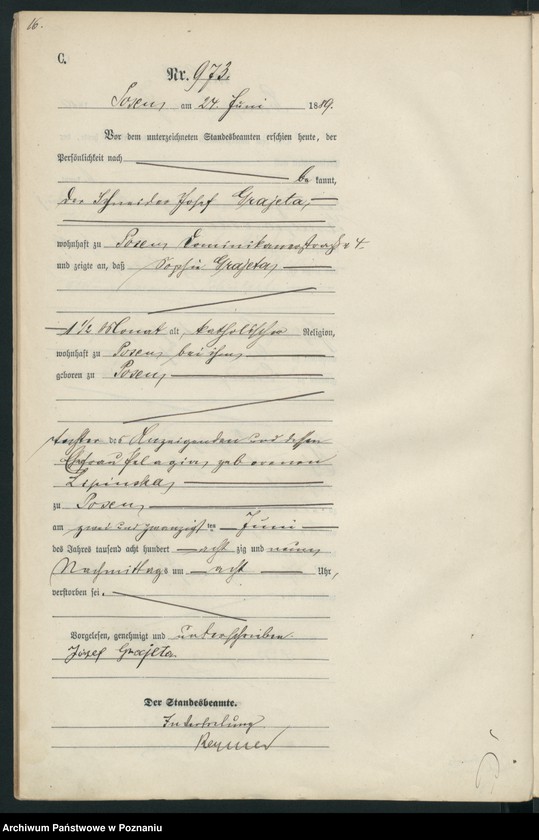 16.
C.
Nr. 973.
Posen, am 24 Juni 1889.
Vor dem unterzeichneten Standesbeamten erschien heute, der
Persönlichkeit nach
be kannt,
der Schneider Josef Grajeta,
wohnhaft zu Posen, Dominikanerstraße 4.
und zeigte an, daß Sophie Grajeta,
1 1/2 Monat alt, katholischer Religion,
wohnhaft zu Posen, bei ihm,
geboren zu Posen,
Tochter des Anzeigenden und dessen
Ehefrau Pelagia, geborenen
Lipinska,
zu Posen,
am zwei und zwanzigsten Juni
des Jahres tausend acht hundert acht zig und neun,
Nachmittags um acht Uhr,
verstorben sei.
Vorgelesen, genehmigt und unterschrieben
Józef Grajeta.
Der Standesbeamte.
In Vertretung
Archiwum Państwowe w Poznaniu